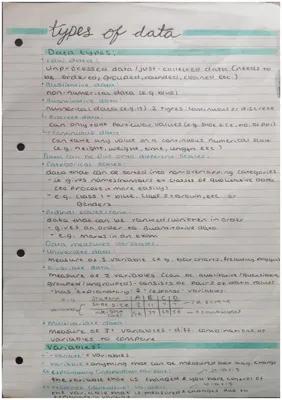 types of data
Data types:
Raw data:
unprocessed data / just-collected data (needs to
be ordered, grouped, rounded, cleaned etc.)
Qualitative data:
non-numerical data (e.g. blue)
Quantitative data:
numerical data (e.g. 12) 2 types: continuous or discrete
Discrete data:
can only take particular values (e.g. shoe size, no. of
Continuous data
can take any value on a continuous numerical scale
(e.g. height, weight, time, length etc.)
Data can be put into different scales:
Categorical scales:
data that can be sorted into non-overlapping categories
gives names/numbers to classes of qualitative data
(to process it more easily)
- e.g. class 1 = blue, class 2 = brown, etc. or
genders
Ordinal scales/rank:
data that can be ranked/written in order
- gives an order to quantitative data
- e.g. marks in an exam
Data measures variables:
Univariate data:
measure of 1 variable e.g. bar charts, frequency
Bivariate data:
measure of 2 variables (can be qualitative/quantitative,
grouped/ungrouped) - consists of pairs of data values
- has 'explanatory' & 'response' variables
e.g. Student A B C D
Shoe size
Multivariate data:
measure of 3+ variables - diff. combinations of
variables to compare
Variables:
variable
variable = anything that can be measured
explanatory (independent) variable:
the variable that is changed & you have control of
response (dependent) variable:
the variable that is measured & changes due to